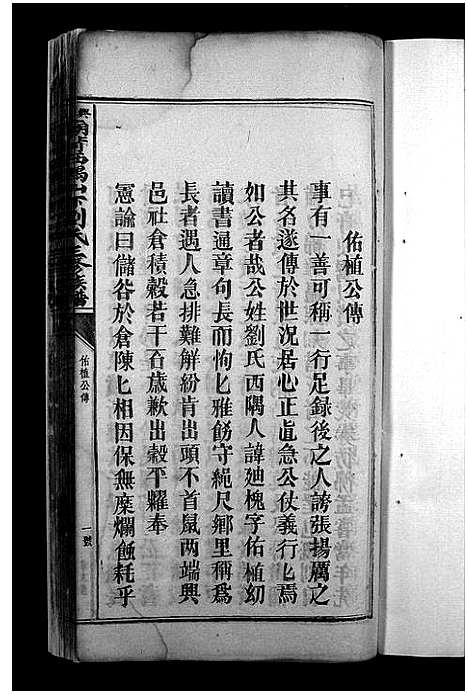 佑植公傳
事有一善可稱一行足録後之人誇張揚厲之
其名遂傳於世況居心正直急公仗義行匕焉
如公者哉公姓劉氏西隅人諱廸槐字佑植幼
讀書通章句長而恂匕雅飭守繩尺鄉里稱爲
長者遇人急排難解紛肯出頭不首鼠两端興
邑社倉積穀若干石歲歉出穀平糶奉
憲論曰儲谷於倉陳匕相因保無糜爛蝕耗乎
佑植公傳
一號